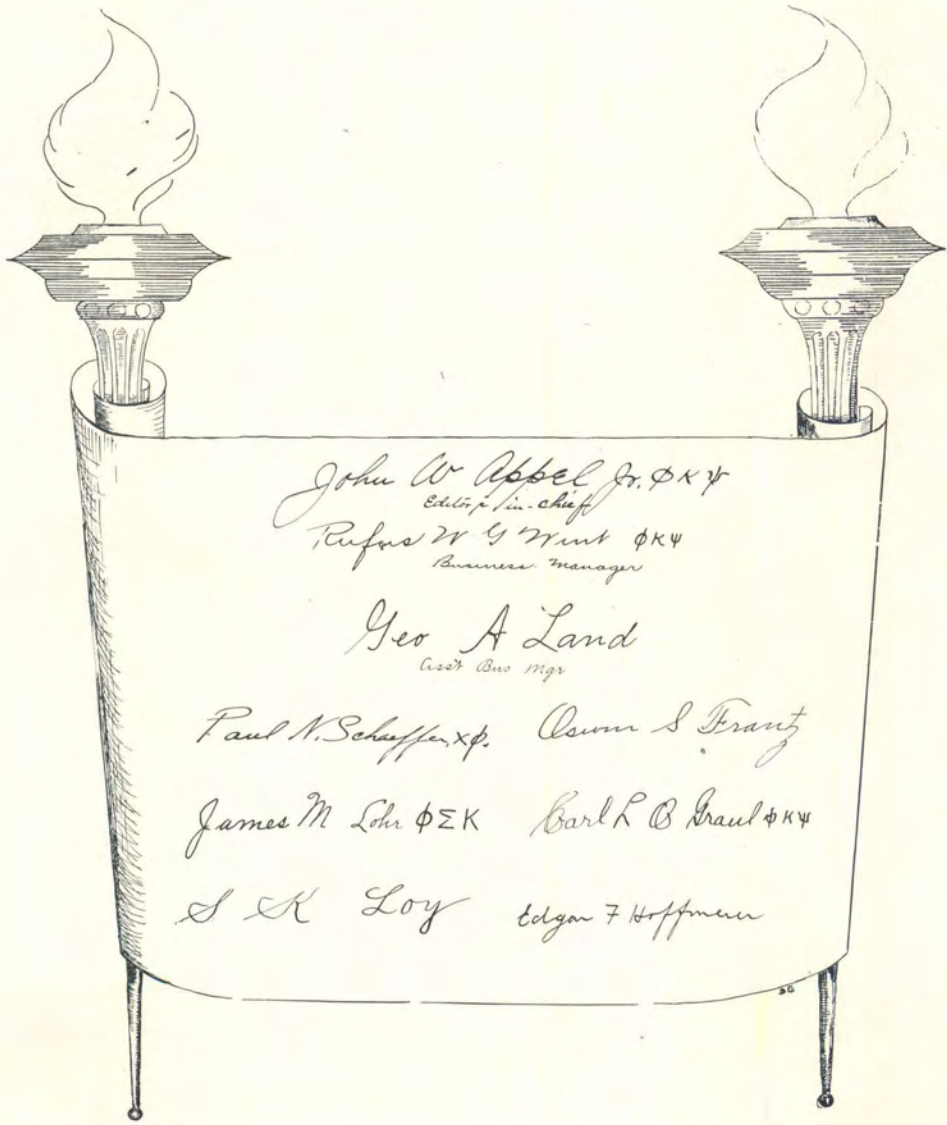 John W Appel Jr. ΦΚΨ
Editor in-chief
Rufus W G Wint ΦΚΨ
Business Manager
Geo A Land
Ass't Bus Mgr
Paul N. Schaeffer, ΧΦ.
Oswin S Frantz
James M Lohr ΦΣΚ
Carl L Graul ΦΚΨ
S K Loy
Edgar F Hoffmeier